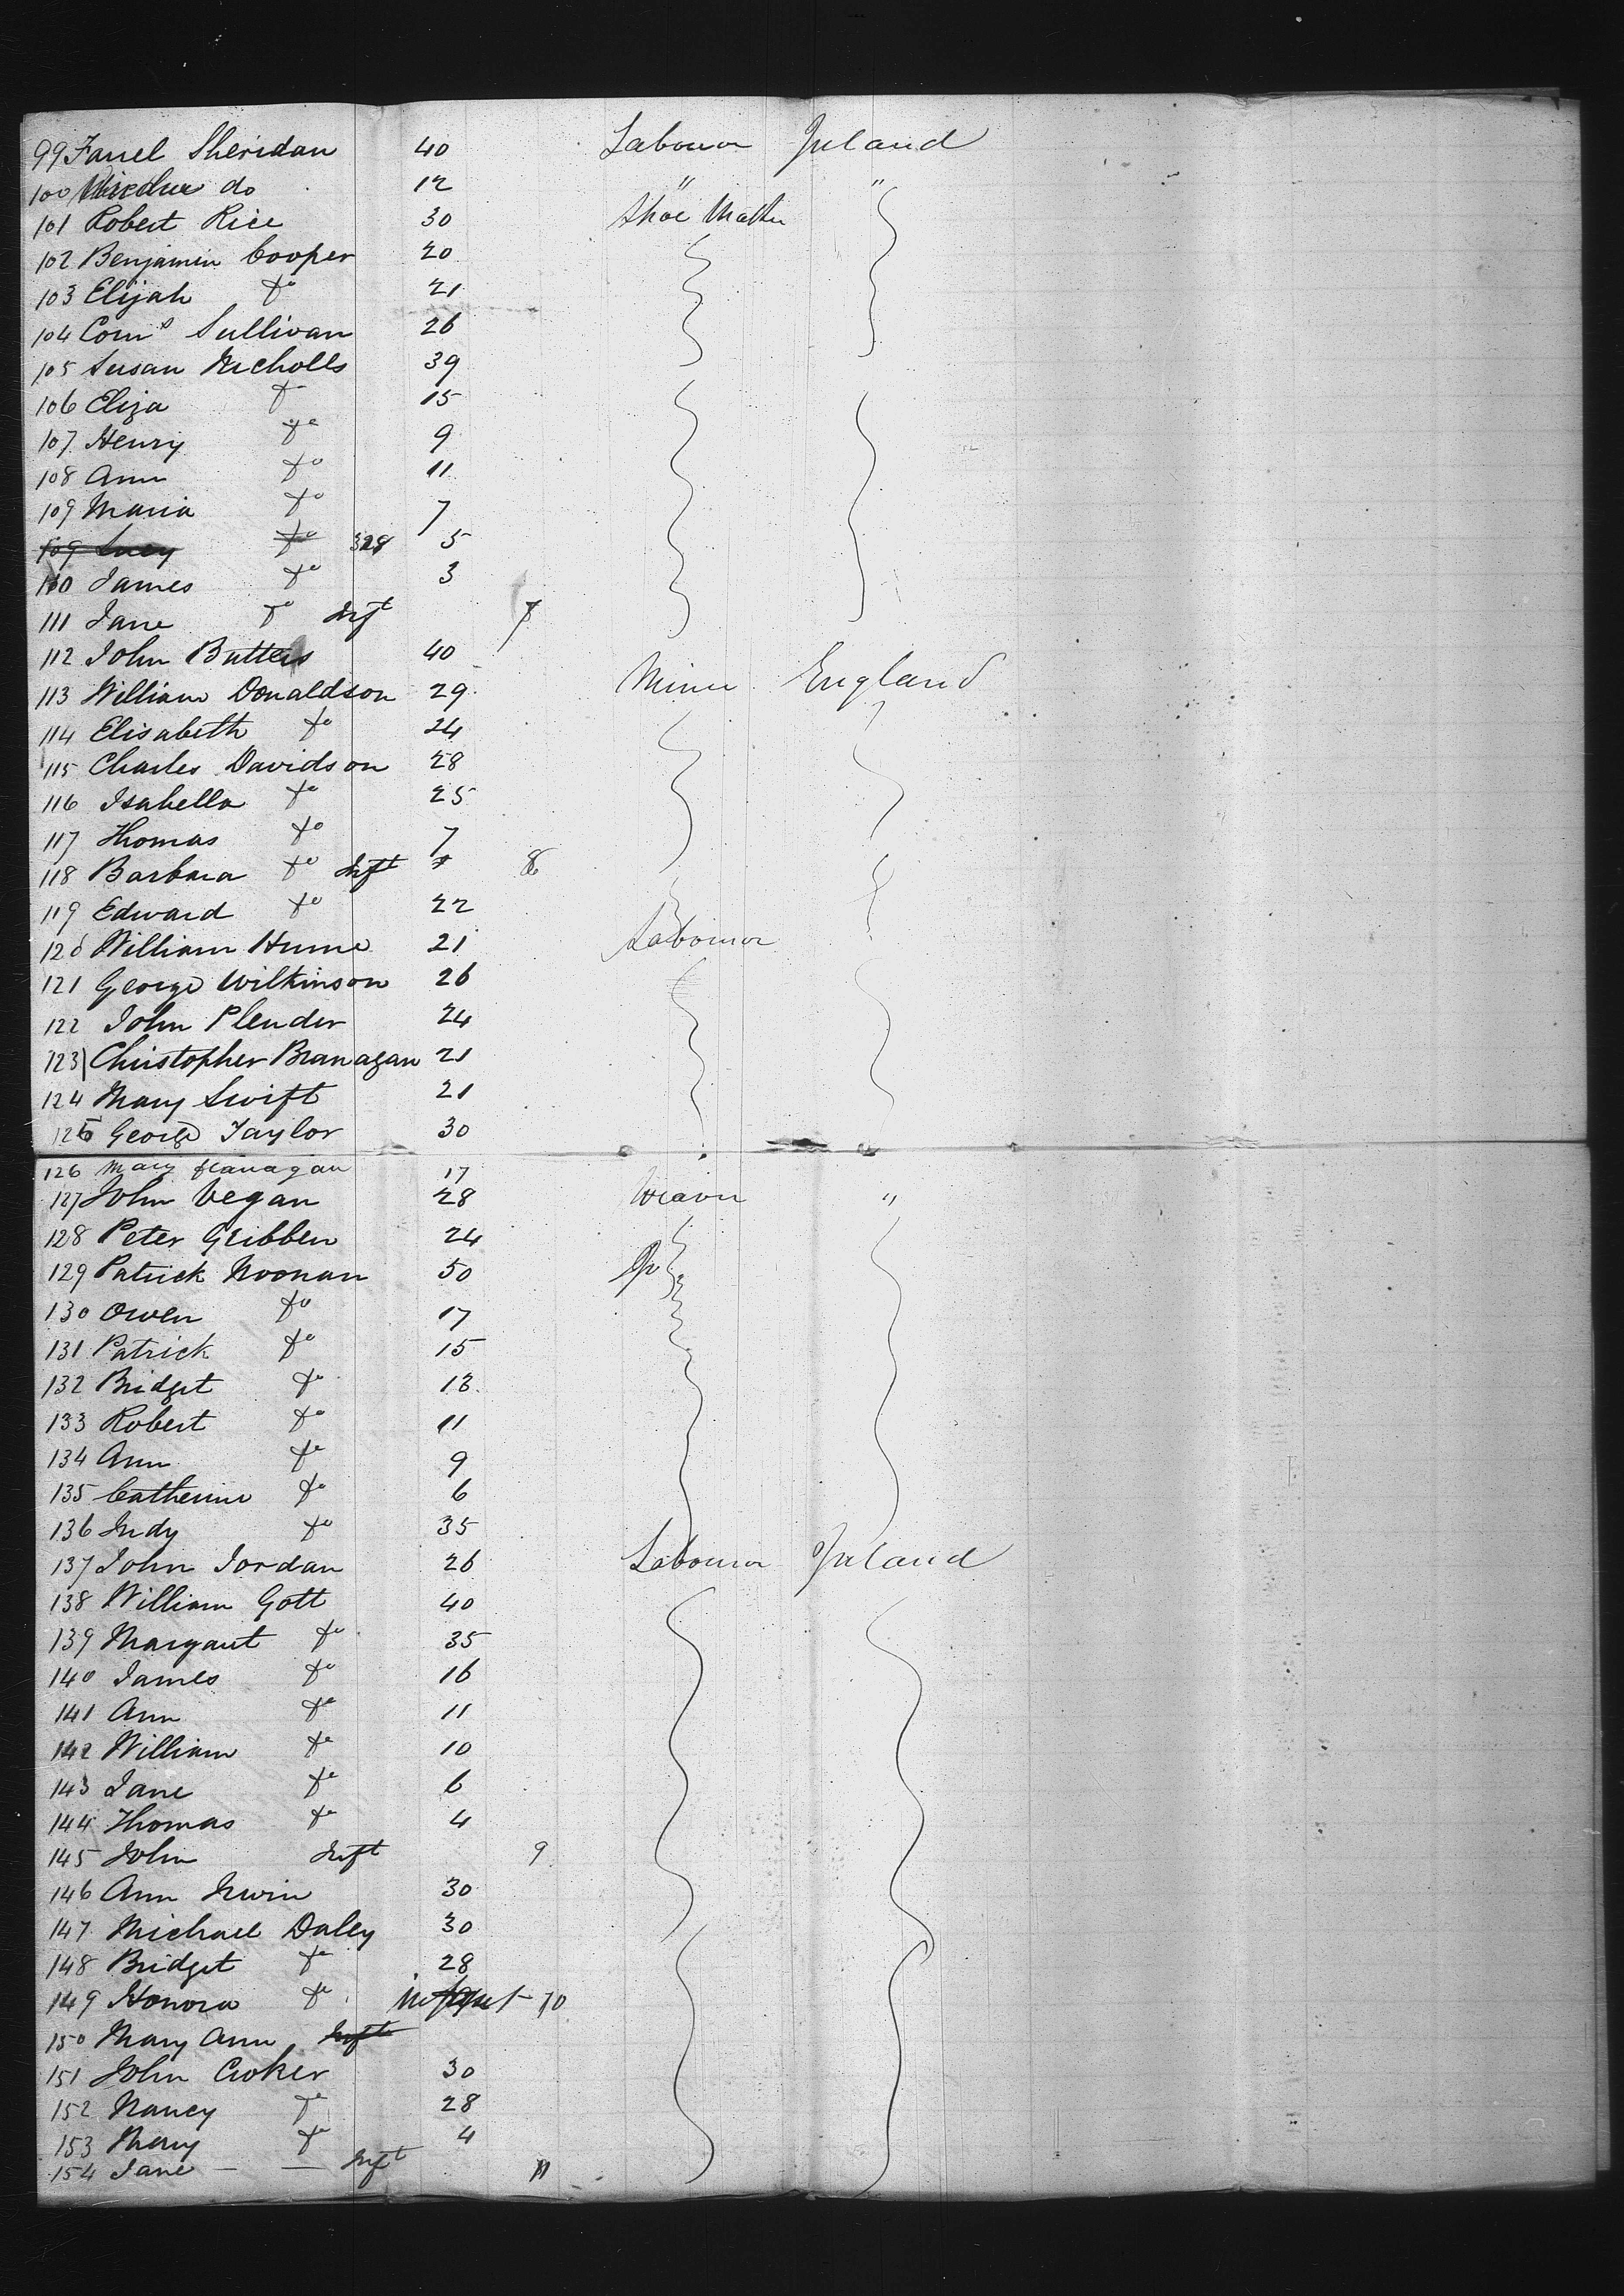 99 Farrel Sheridan 40 Labourer Ireland
100 do 12 " "
101 Robert Rice 30 Shoe Maker
102 Benjamin Cooper 20
103 Elijah do 21
104 Corns Sullivan 26
105 Susan Nicholls 39
106 Eliza do 15
107 Henry do 9
108 Ann do 11
109 Maria do 7
109 Lucy do 328 5
110 James do 3
111 Jane do Inft 7
112 John Butters 40
113 William Donaldson 29 Miner England
114 Elisabeth do 24
115 Charles Davidson 28
116 Isabella do 25
117 Thomas do 7
118 Barbara do Inft 8
119 Edward do 22
120 William Hume 21 Labourer
121 George Wilkinson 26
122 John Plender 24
123 Christopher Branagan 21
124 Mary Swift 21
125 George Taylor 30
126 Mary Flanagan 17
127 John Vegan 28 Weaver "
128 Peter Gribben 24
129 Patrick Noonan 50 Do
130 Owen do 17
131 Patrick do 15
132 Bridget do 13
133 Robert do 11
134 Ann do 9
135 Catherine do 6
136 Judy do 35
137 John Jordan 26 Labourer Ireland
138 William Gott 40
139 Margaret do 35
140 James do 16
141 Ann do 11
142 William do 10
143 Jane do 6
144 Thomas do 4
145 John Inft 9
146 Ann Irwin 30
147 Michael Daley 30
148 Bridget do 28
149 Honora do infant 10
150 Mary Ann Inft
151 John Croker 30
152 Nancy do 28
153 Mary do 4
154 Jane — — Inft 11